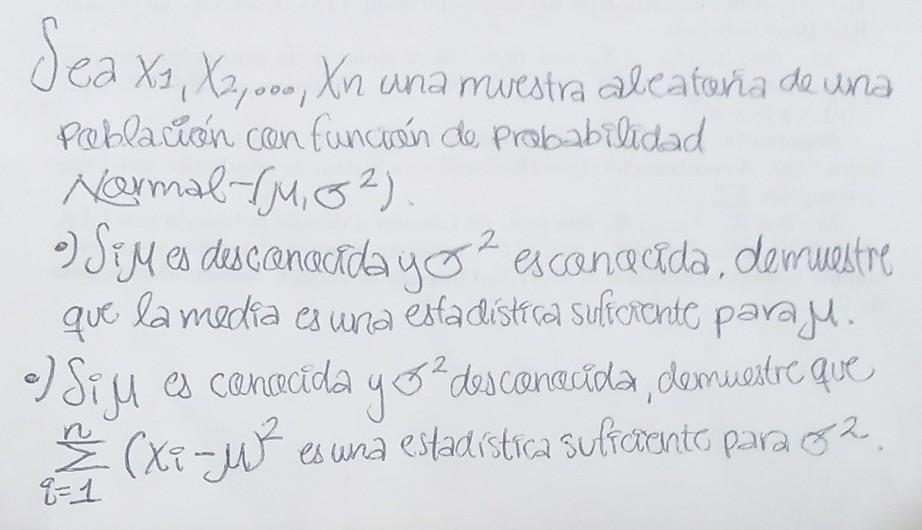 Sea X1, X2,..., Xn una muestra aleatoria de una
Población con función de probabilidad
Normal-(μ, σ²).
•) Si μ es desconocida y σ² es conocida, demuestre
que la media es una estadística suficiente para μ.
•) Si μ es conocida y σ² desconocida, demuestre que
n
∑ (xi-μ)² es una estadística suficiente para σ².
i=1